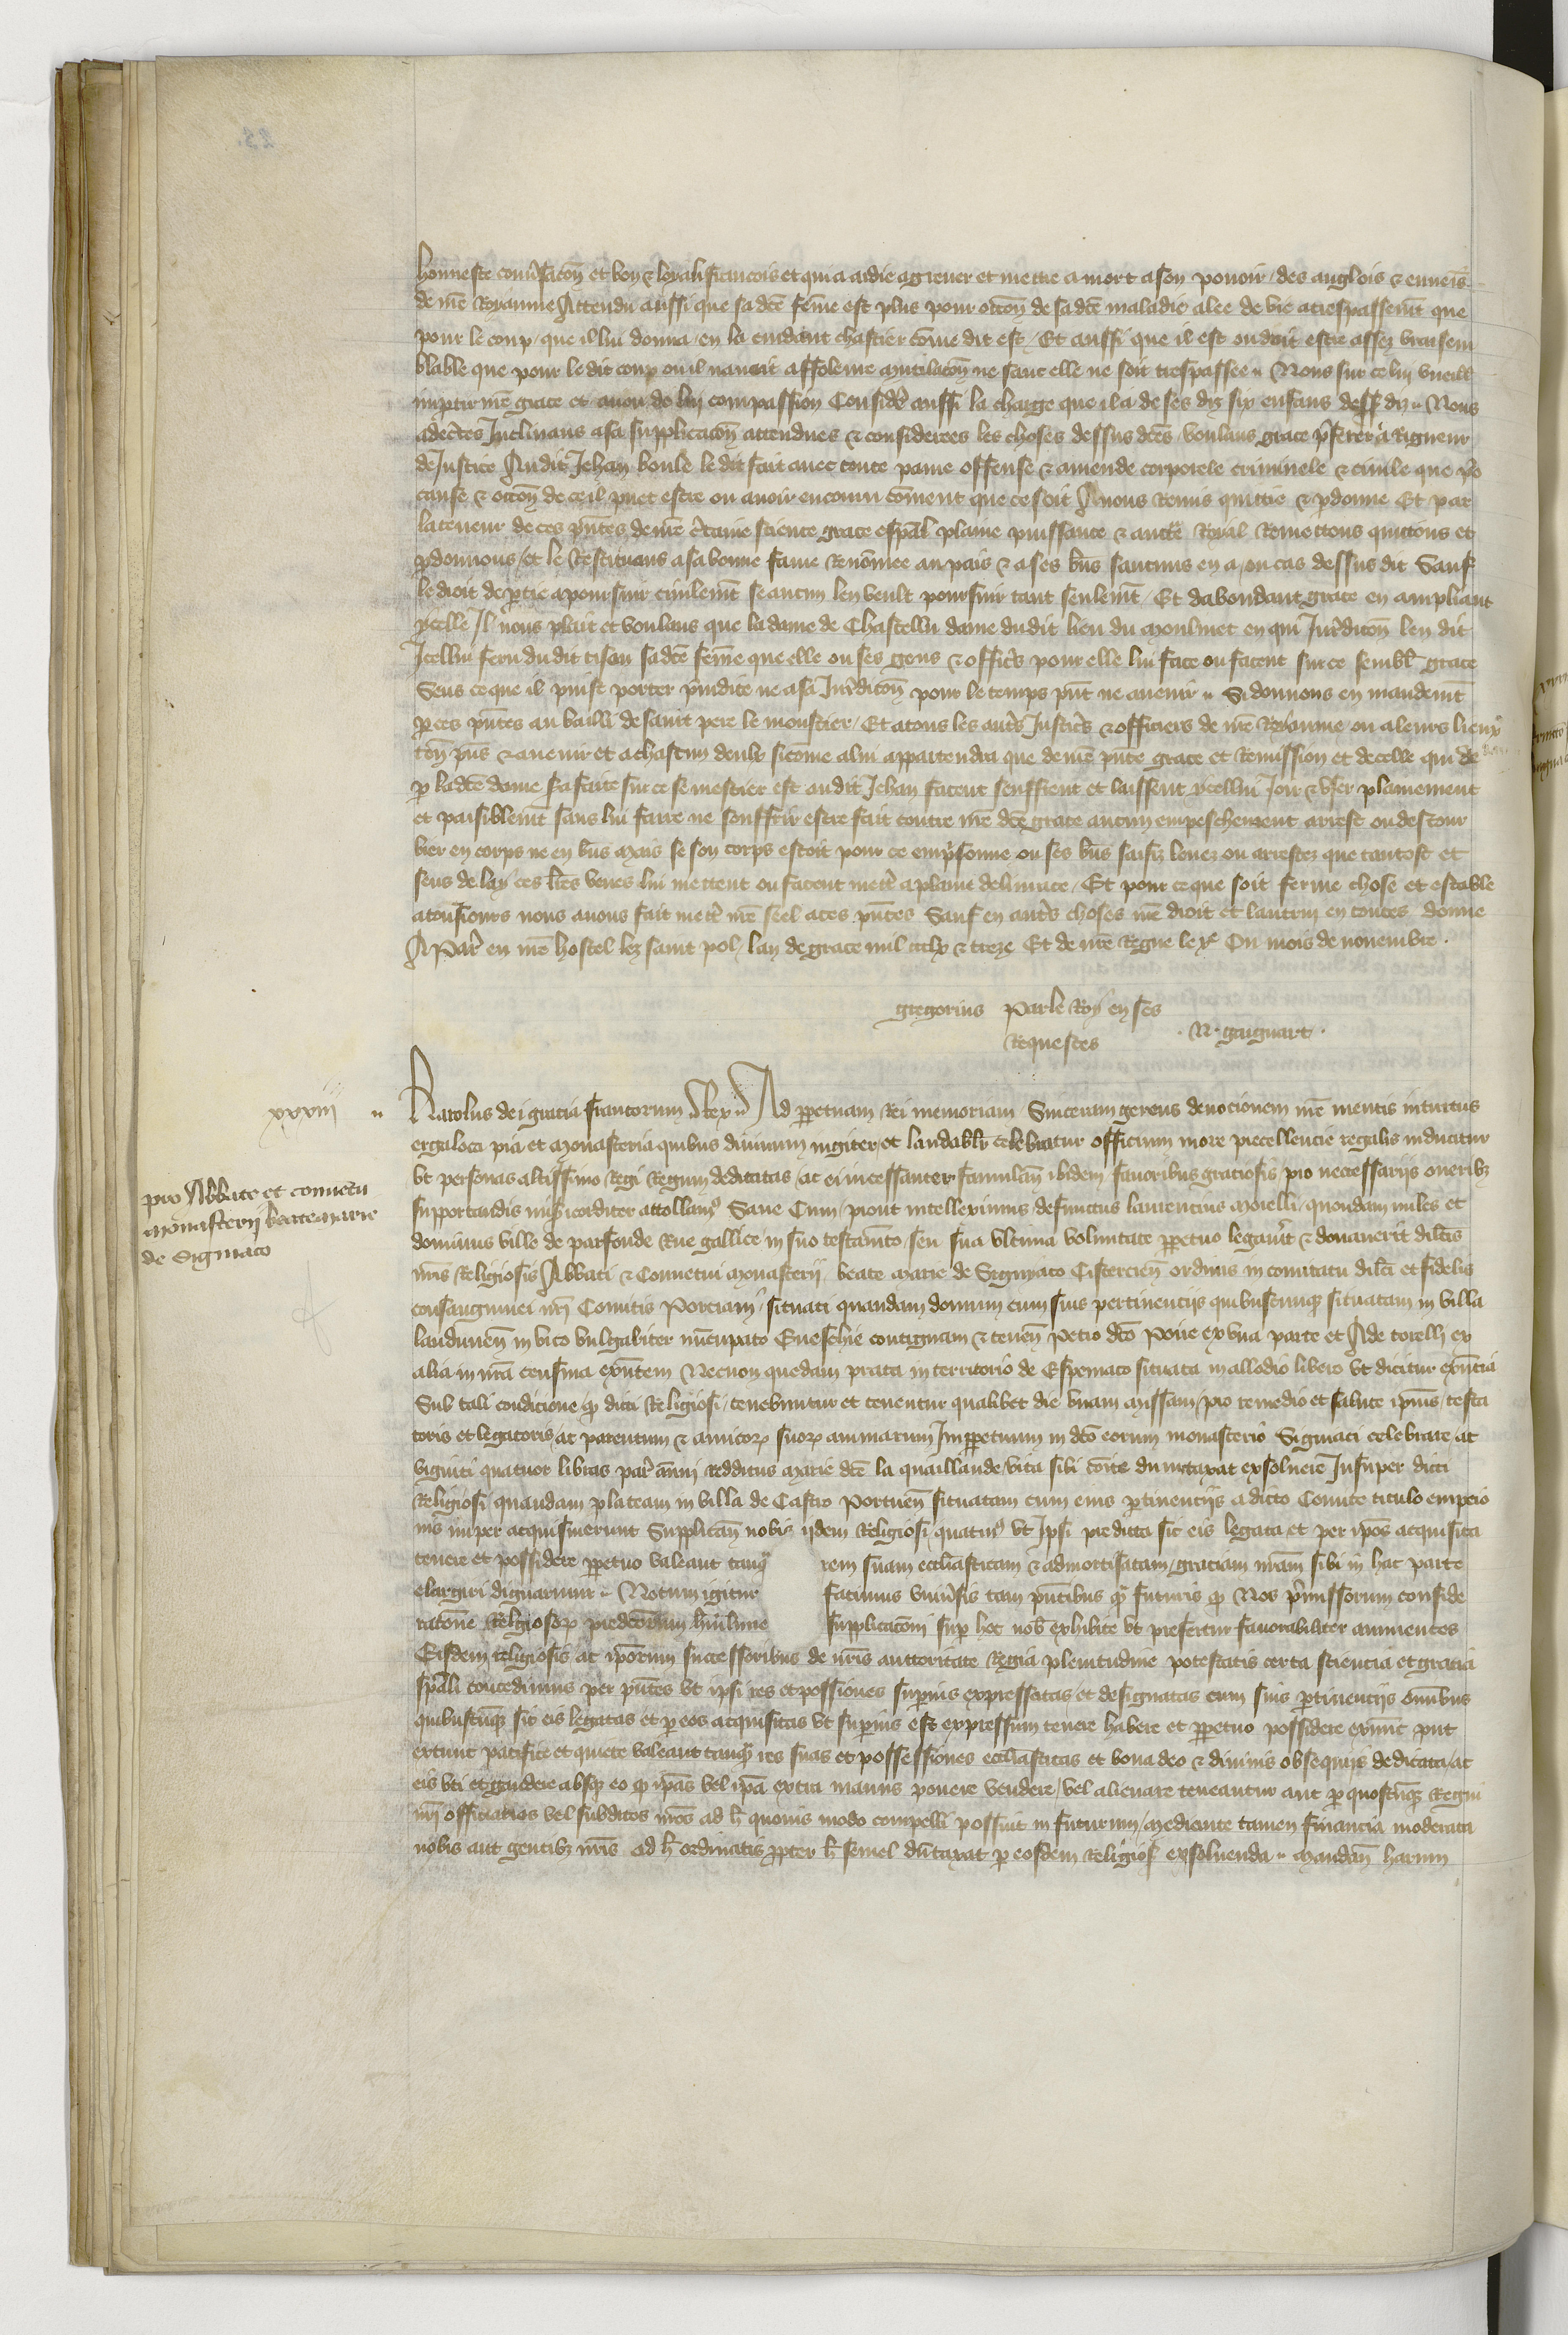 honneste conũsacõn et bon & loyal francois et qui a aidie agreuer et mettre a mort a son pouoir / des anglois & ennemis
de nr̃e Royaume Attendu aussi que sa dc̃e fem̃e est plus pour occõn de sa dc̃e maladie alee de vie a trespassem̃t que
pour le coup / que il lui donna / en la cuidant chastier com̃e dit est / Et aussi que il est ou doit estre assez vraisem
blable que pour le dit coup ou il nauoit affoleure mutilacõn ne sanc elle ne soit trespassee Nous sur ce lui vueill
imp̃tir nr̃e grace et auoir de lui compassion Consider̃ aussi la charge que il a de ses dis six enfans Nous
adec̃tes Inclinans a sa supplicacõn attendues & considerees les choses dessus dc̃es / voulans grace p̃ferer a Rigueur
de Justice Audit Jehan le dit fait auec toute paine offense & amende corporele criminele & ciuile que p̃
cause & occõn de ce il puet estre ou auoir encouru com̃ent que ce soit Auons Remis quittie & p̃donne Et par
la teneur de ces p̃ntes de nr̃e c̃taine science grace esp̃al plaine puissance & auct̃e Royal Remettons quittons et
p̃donnons / et le Restituons a sa bonne fame Renom̃ee au pais & a ses biẽs sauciuns en a / ou cas dessus dit Sauf
le droit de p̃tie a poursuir ciuilem̃t se aucun len veult poursuir tant seulem̃t / Et dabondant grace en ampliant
ycelle Il nous plait et voulons que la dame de Chastellu dame dudit lieu du moulinet en qui Jur̃dicõn len dit
Icellui feru du dit tison sa dc̃e fem̃e que elle ou ses gens & offic̃s pour elle lui face ou facent sur ce sembl̃ grace
Sens ce que il puist porter p̃iudice ne a sa Jur̃dicõn pour le temps p̃nt ne auenir Si donnons en mandem̃t
p̃ ces p̃ntes au bailli de saint pere le moustier / Et a tous les aut̃s Justic̃s & officiers de nr̃e Royaume ou a leurs lieux
teñ p̃ns & auenir et a chascun deulx sicom̃e a lui appartendra que de nr̃e p̃nte grace et Remission et de celle qui de
p̃ la dc̃e dame s̃a faite sur ce se mestier est audit Jehan facent seuffrent et laissent ycellui Joir & vser plainement
et paisiblem̃t sans lui faire ne souffrir estre fait contre nr̃e dc̃e grace aucun empeschement arrest ou destour
bier en corps ne en biẽs mais se son corps estoit pour ce emp̃sonne ou ses biẽs saisiz leuez ou arrestez que tantost et
sens delay ces lr̃es veues lui mettent ou facent mett̃e a plaine deliurance / Et pour ce que soit ferme chose et estable
a tousiours nous auons fait mett̃e nr̃e seel a ces p̃ntes Sauf en aut̃s choses nr̃e droit et lautruy en toutes donne
A Par̃ en nr̃e hostel lez saint pol / lan de grace mil ccclx & treze Et de nr̃e Regne le xe Ou mois de nouembre .
gregorius Par le Roy en ses
Requestes . N. gaignart .
xxxiii Karolus dei gracia francorum Rex Ad p̃petuam Rei memoriam Sinceram gerens deuocionem nr̃e mentis intuitus
erga loca pia et monasteria quibus diuinum iugiter / et laudabil̃r celebratur officium more precellencie regalis inducitur
vt personas altissimo Regi Regum dedicatas / ac ei incessanter famulañ ibidem fauoribus graciosis pro necessarijs oneribz
pro Abbate et conuentu
monasterij beate marie
de Signiaco
supportandis mis̃icorditer attollam9 Sane Cum / prout intelleximus defunctus laurencius morelli / quondam miles et
dominus ville de parfonde Rue gallice in suo testam̃to / seu sua vltima voluntate p̃petuo legauer̃t & donauerit dilc̃is
nr̃is Religiosis Abbati & Conuentui monasterij beate marie de Signiaco Cisterciẽn ordinis in comitatu dilc̃i et fidelis
consanguinei nr̃i Comitis Porciani / situati quandam domum cum suis pertinencijs quibuscunqz situatam in villa
laudunẽn in vico vulgaliter nũcupato Eueschie contiguam & tenẽn Petro dc̃o Poue ex vna parte et Ade torelli ex
alia in nr̃a censiua exñtem Necnon quedam prata in territorio de Espernaco situata in allodio libero vt dicitur exñtia
Sub tali condicione qp̃ dicti Religiosi / tenebuntur et tenentur qualibet die vnam missam / pro remedio et salute ip̃ius / testa
toris et legatoris / ac parentum & amicor̃ suor̃ animarum Imp̃petuum in dc̃o eorum monasterio Signiaci celebrare ac
viginti quatuor libras par̃ annui redditus marie dc̃e la quaillaude / vita sibi com̃te dumtaxat exsoluere Insuper dicti
Religiosi quandam plateam in villa de Castro Portuẽn situatam cum eius p̃tinencijs a dicto Comite titulo empcio
nis nuper acquisiuerunt Supplicañ nobis ijdem Religiosi / quatin9 vt Ipsi predicta sic eis legata et per ip̃os acquisita
tenere et possidere p̃petuo valeant tanq̃ rem suam eccl̃iasticam & admortisatam / graciam nr̃am sibi in hac parte
elargiri dignaremur Notum igitur facimus vniũsis tam p̃ntibus q̃ futuris qp̃ Nos p̃missorum conside
racõne Religiosor̃ predc̃orum humilime supplicacõni sup̃ hoc nob̃ exhibite vt prefertur fauorabiliter annuentes
Eisdem religiosis ac ip̃orum successoribus de nr̃is auctoritate Regia plenitudine potestatis certa sciencia et gracia
sp̃ali concedimus per p̃ntes vt ipsi res et possiones superius expressatas et designatas cum suis p̃tinencijs om̃ibus
quibuscũqz sic eis legatas et p̃ eos acquisitas vt superius est expressum tenere habere et p̃petuo possidere exnũc prout
extunc pacifice et quiete valeant tanq̃ res suas et possessiones eccl̃iasticas et bona deo & diuinis obsequijs dedicata / ac
eis vti et gaudere absqz eo qp̃ ip̃as vel ip̃a extra manus ponere vendere / vel alienare teneantur aut p̃ quoscũqz Regni
nr̃i officiarios vel subditos nr̃os ad h̃ quouis modo compelli possint in futurum / mediante tamen financia moderata
nobis aut gentibz nr̃is ad h̃ ordinatis p̃pter h̃ semel dũtaxat p̃ eosdem Religios̃ exsoluenda mandañ harum